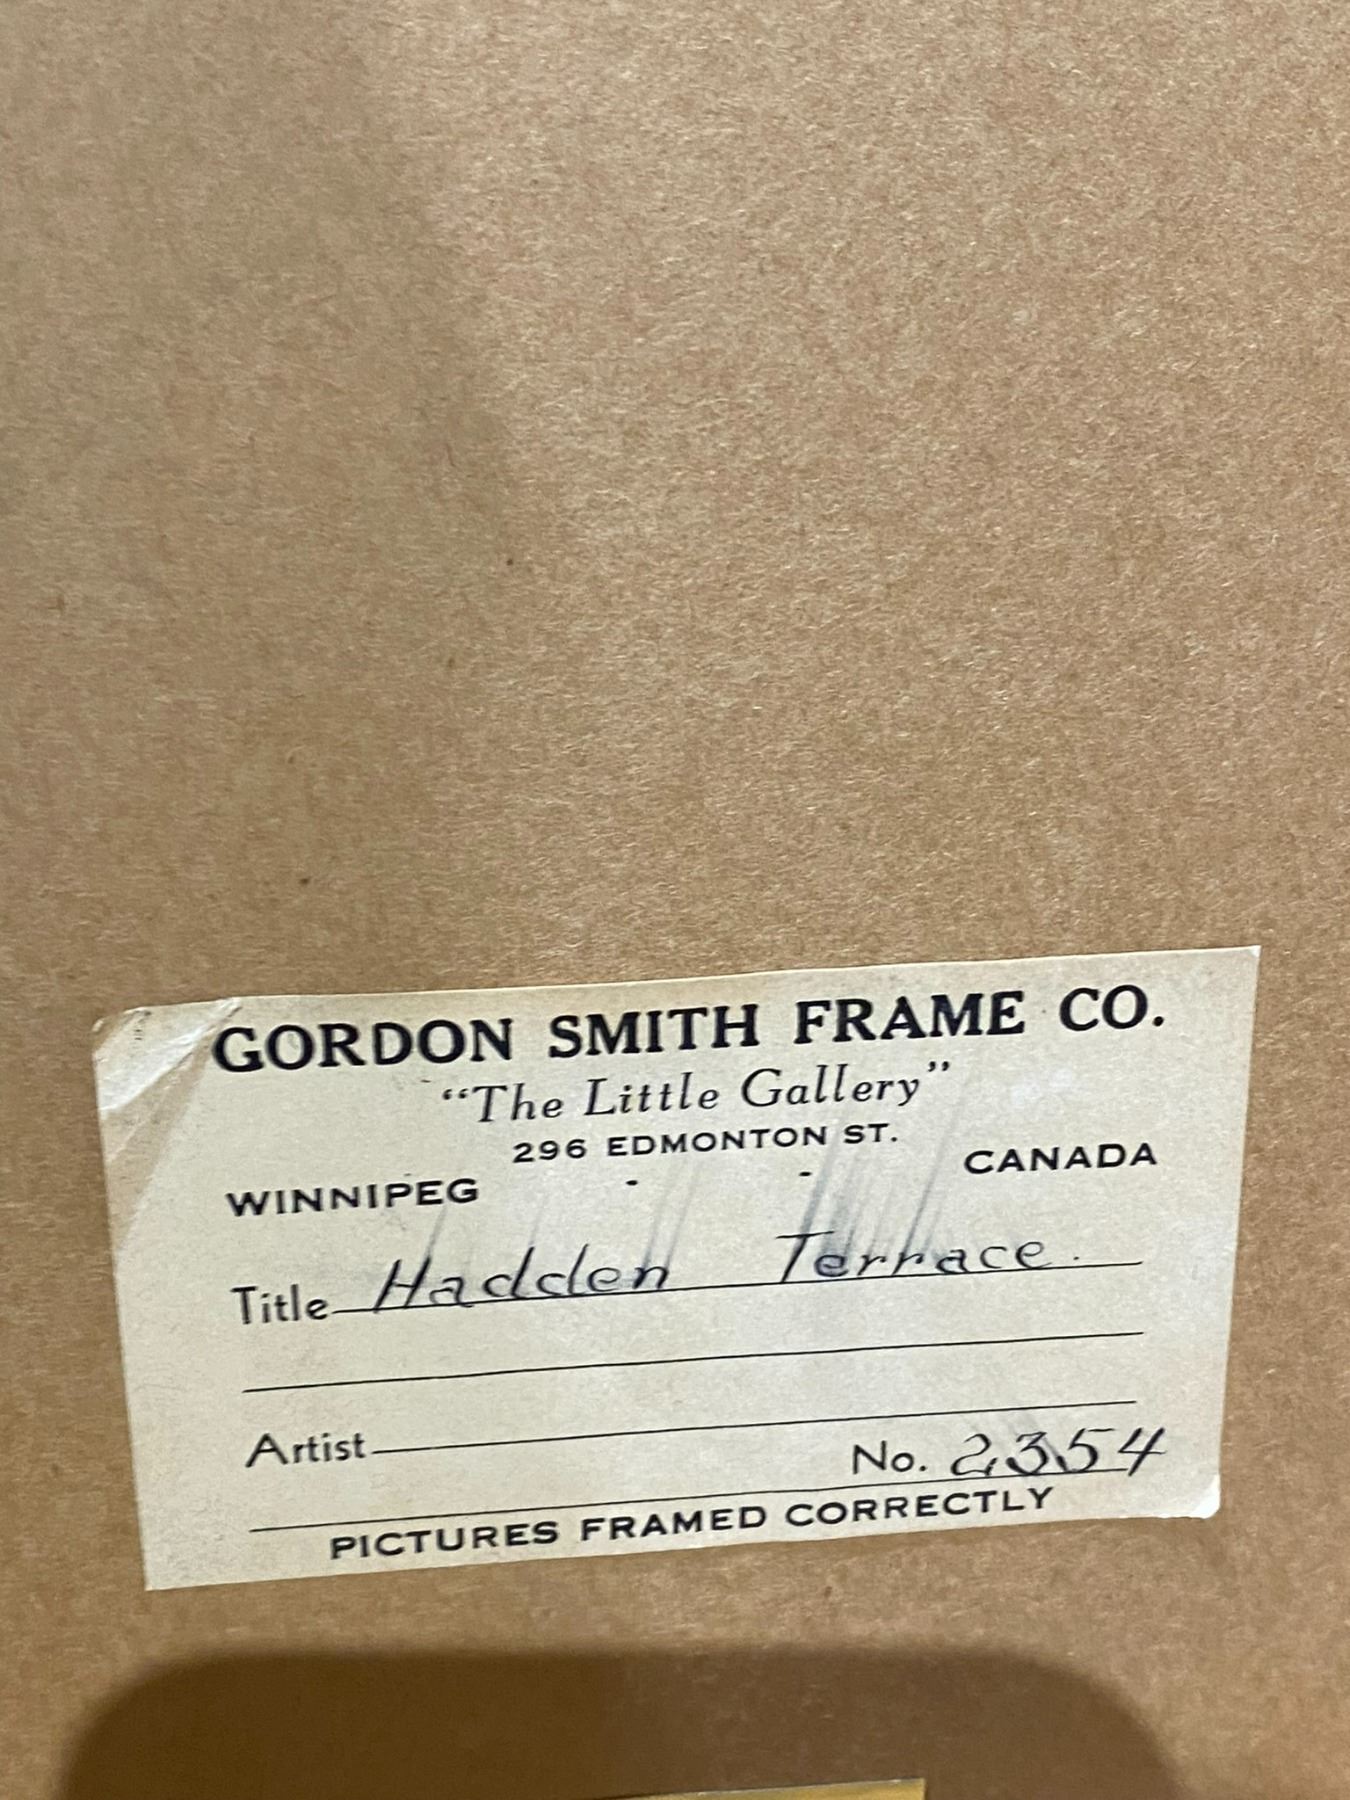 GORDON SMITH FRAME CO.
“The Little Gallery”
296 EDMONTON ST.
WINNIPEG - - CANADA
Title Hadden Terrace.
Artist
No. 2354
PICTURES FRAMED CORRECTLY